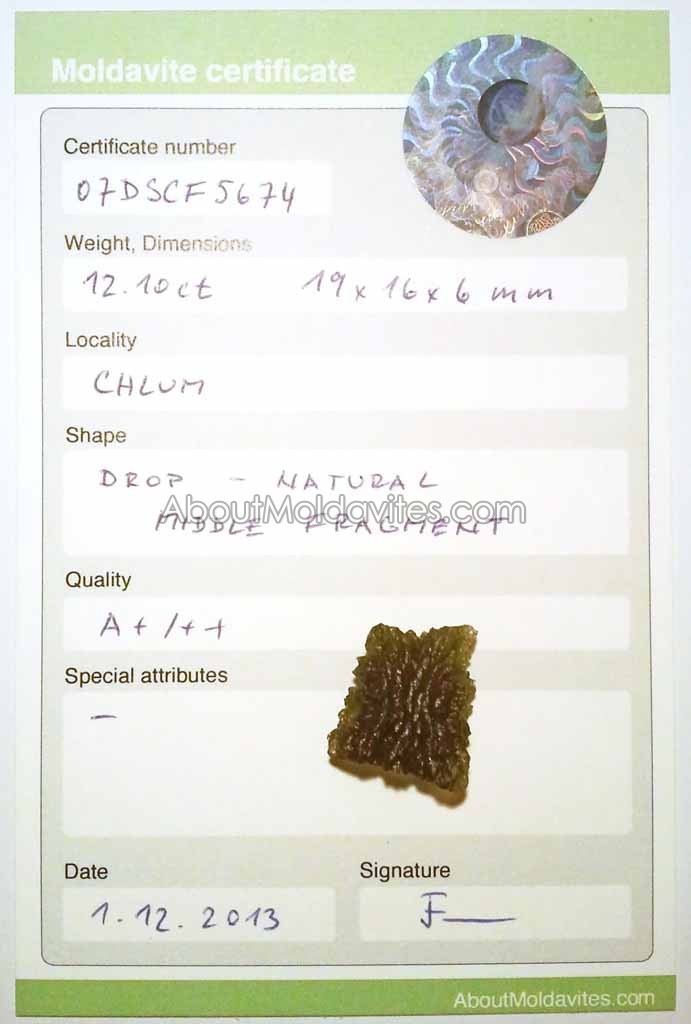 Moldavite certificate
Certificate number
07DSCF5674
Weight, Dimensions
12.10ct 19 x 16 x 6 mm
Locality
CHLUM
Shape
DROP - NATURAL
AboutMoldavites.com
MIDDLE FRAGMENT
Quality
A+/++
Special attributes
–
Date
1.12.2013
Signature
AboutMoldavites.com